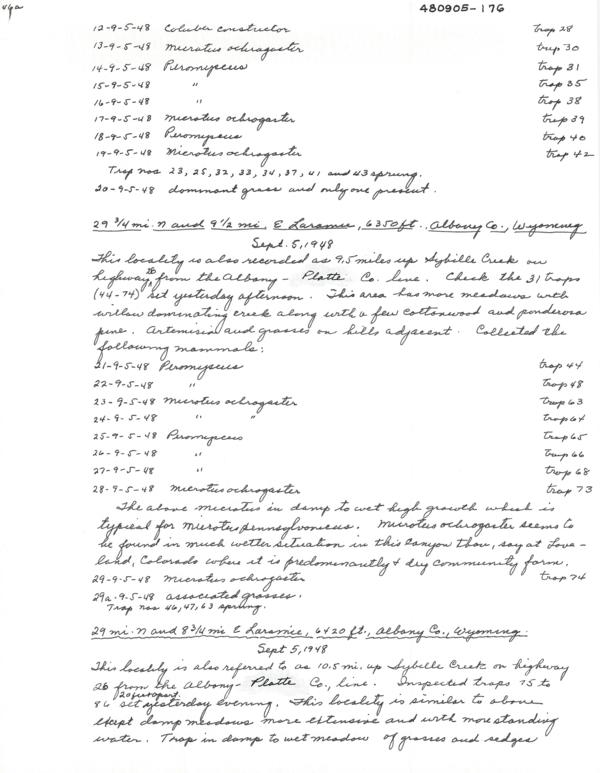 vga
480905-176
12-9-5-48 Coluber constructor trap 28
13-9-5-48 Microtus ochrogaster trap 30
14-9-5-48 Peromyscus trap 31
15-9-5-48 " trap 35
16-9-5-48 " trap 38
17-9-5-48 Microtus ochrogaster trap 39
18-9-5-48 Peromyscus trap 40
19-9-5-48 Microtus ochrogaster trap 42
Trap nos 23, 25, 32, 33, 34, 37, 41 and 43 sprung.
20-9-5-48 dominant grass and only one present.
29 3/4 mi. N and 9 1/2 mi. E Laramie, 6350 ft., Albany Co., Wyoming
Sept. 5, 1948
This locality is also recorded as 9.5 miles up Sybille Creek on
highway 26 from the Albany - Platte Co. line. Check the 31 traps
(44-74) set yesterday afternoon. This area has more meadows with
willow dominating creek along with a few cottonwood and ponderosa
pine. Artemisia and grasses on hills adjacent. Collected the
following mammals:
21-9-5-48 Peromyscus trap 44
22-9-5-48 " trap 48
23-9-5-48 Microtus ochrogaster trap 63
24-9-5-48 " " trap 64
25-9-5-48 Peromyscus trap 65
26-9-5-48 " trap 66
27-9-5-48 " trap 68
28-9-5-48 Microtus ochrogaster trap 73
The above microtus in damp to wet high growth which is
typical for Microtus pennsylvanicus. Microtus ochrogaster seems to
be found in much wetter situation in this canyon than, say at Love-
land, Colorado where it is predominantly a dry community form.
29-9-5-48 Microtus ochrogaster trap 74
29a-9-5-48 associated grasses.
Trap nos 46, 47, 63 sprung.
29 mi. N and 8 3/4 mi E Laramie, 6420 ft., Albany Co., Wyoming.
Sept 5, 1948
This locality is also referred to as 10.5 mi. up Sybille Creek on highway
26 from the Albany - Platte Co., line. Inspected traps 75 to
86 20 feet apart set yesterday evening. This locality is similar to above
except damp meadows more extensive and with more standing
water. Trap in damp to wet meadow of grasses and sedges